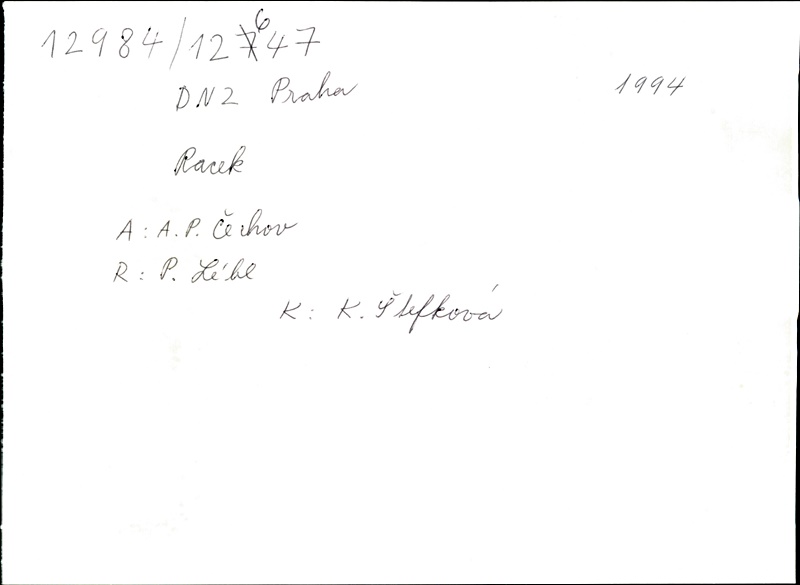 12984/12647
DNZ Praha 1994
Racek
A: A.P. Čechov
R: P. Lébl
K: K. Štefková